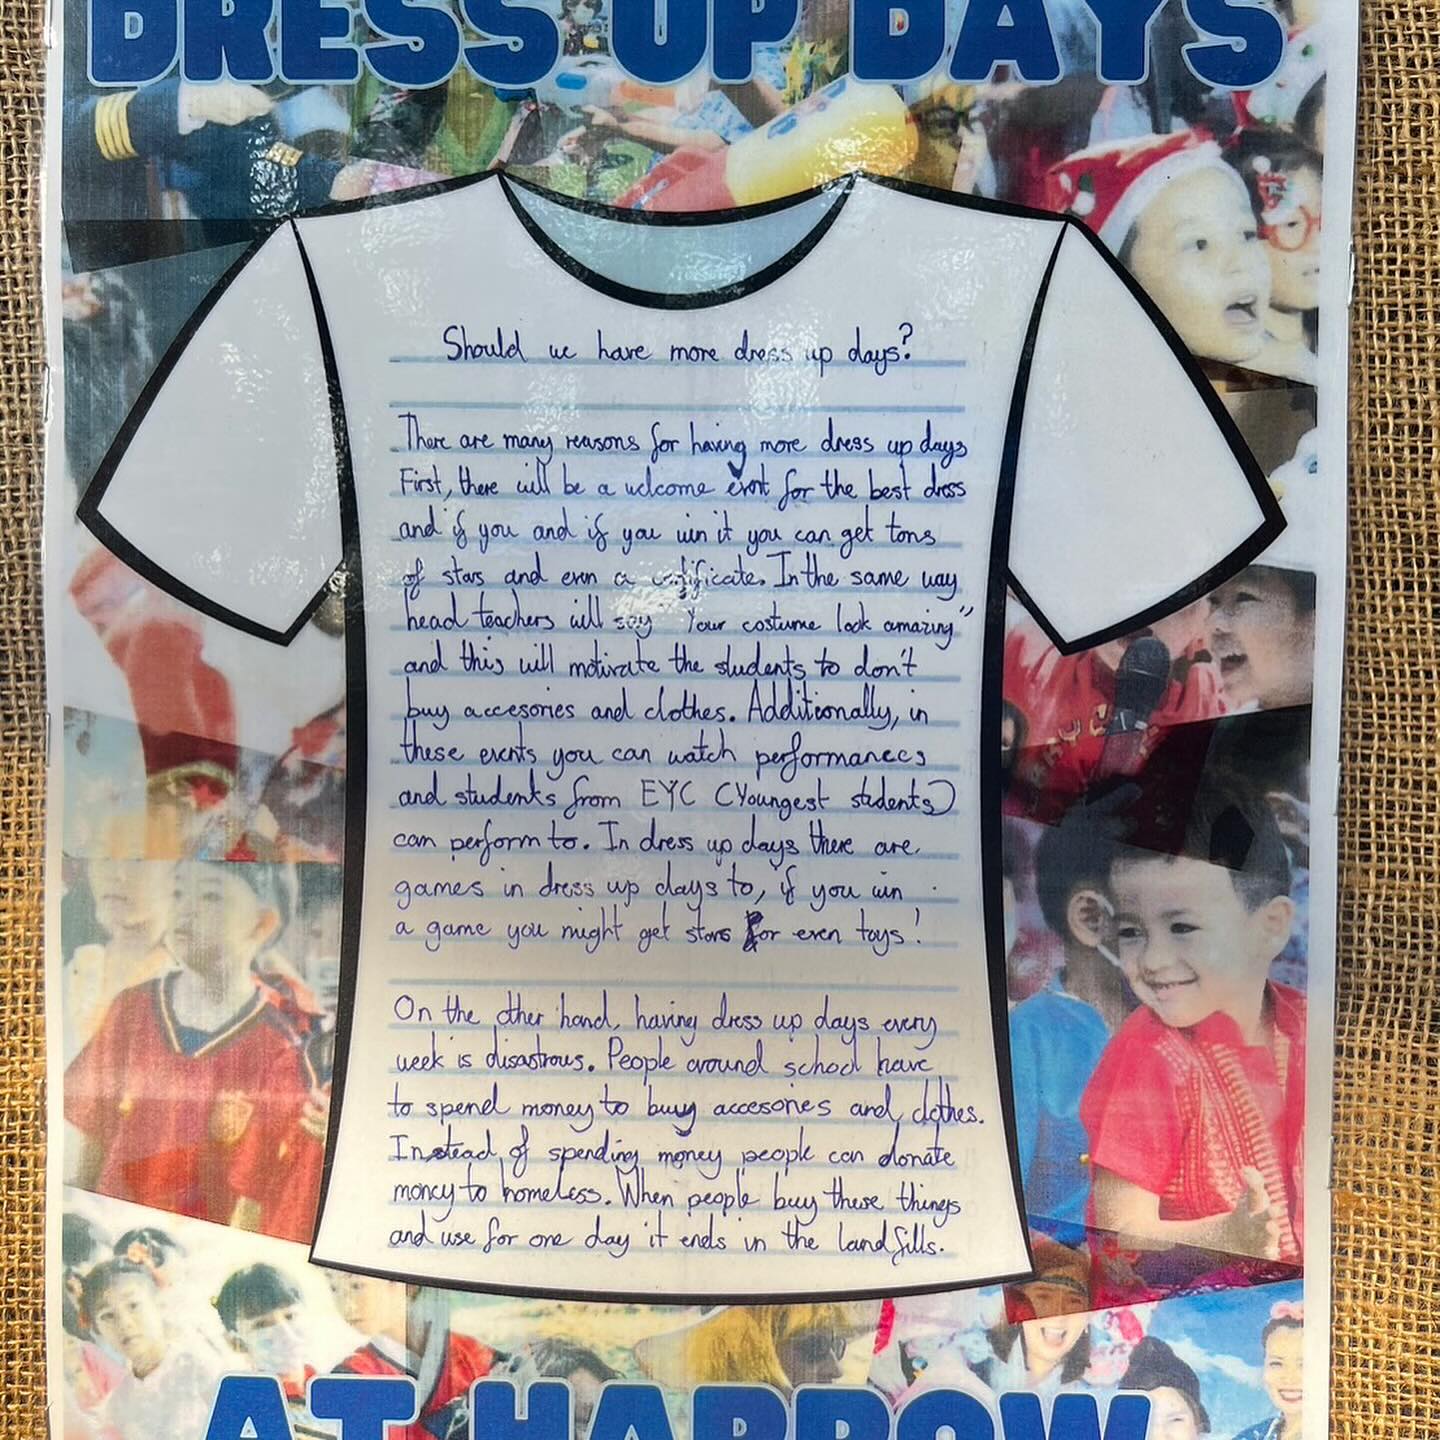 DRESS UP DAYS
Should we have more dress up days?
There are many reasons for having more dress up days
First, there will be a welcome event for the best dress
and if you and if you win it you can get tons
of stars and even a certificate. In the same way
head teachers will say "Your costume look amazing"
and this will motivate the students to don't
buy accesories and clothes. Additionally, in
these events you can watch performances
and students from EYC (Youngest students)
can perform to. In dress up days there are
games in dress up days to, if you win
a game you might get stars or even toys!
On the other hand, having dress up days every
week is disastrous. People around school have
to spend money to buy accesories and clothes.
Instead of spending money people can donate
money to homeless. When people buy these things
and use for one day it ends in the landfills.
AT HARROW